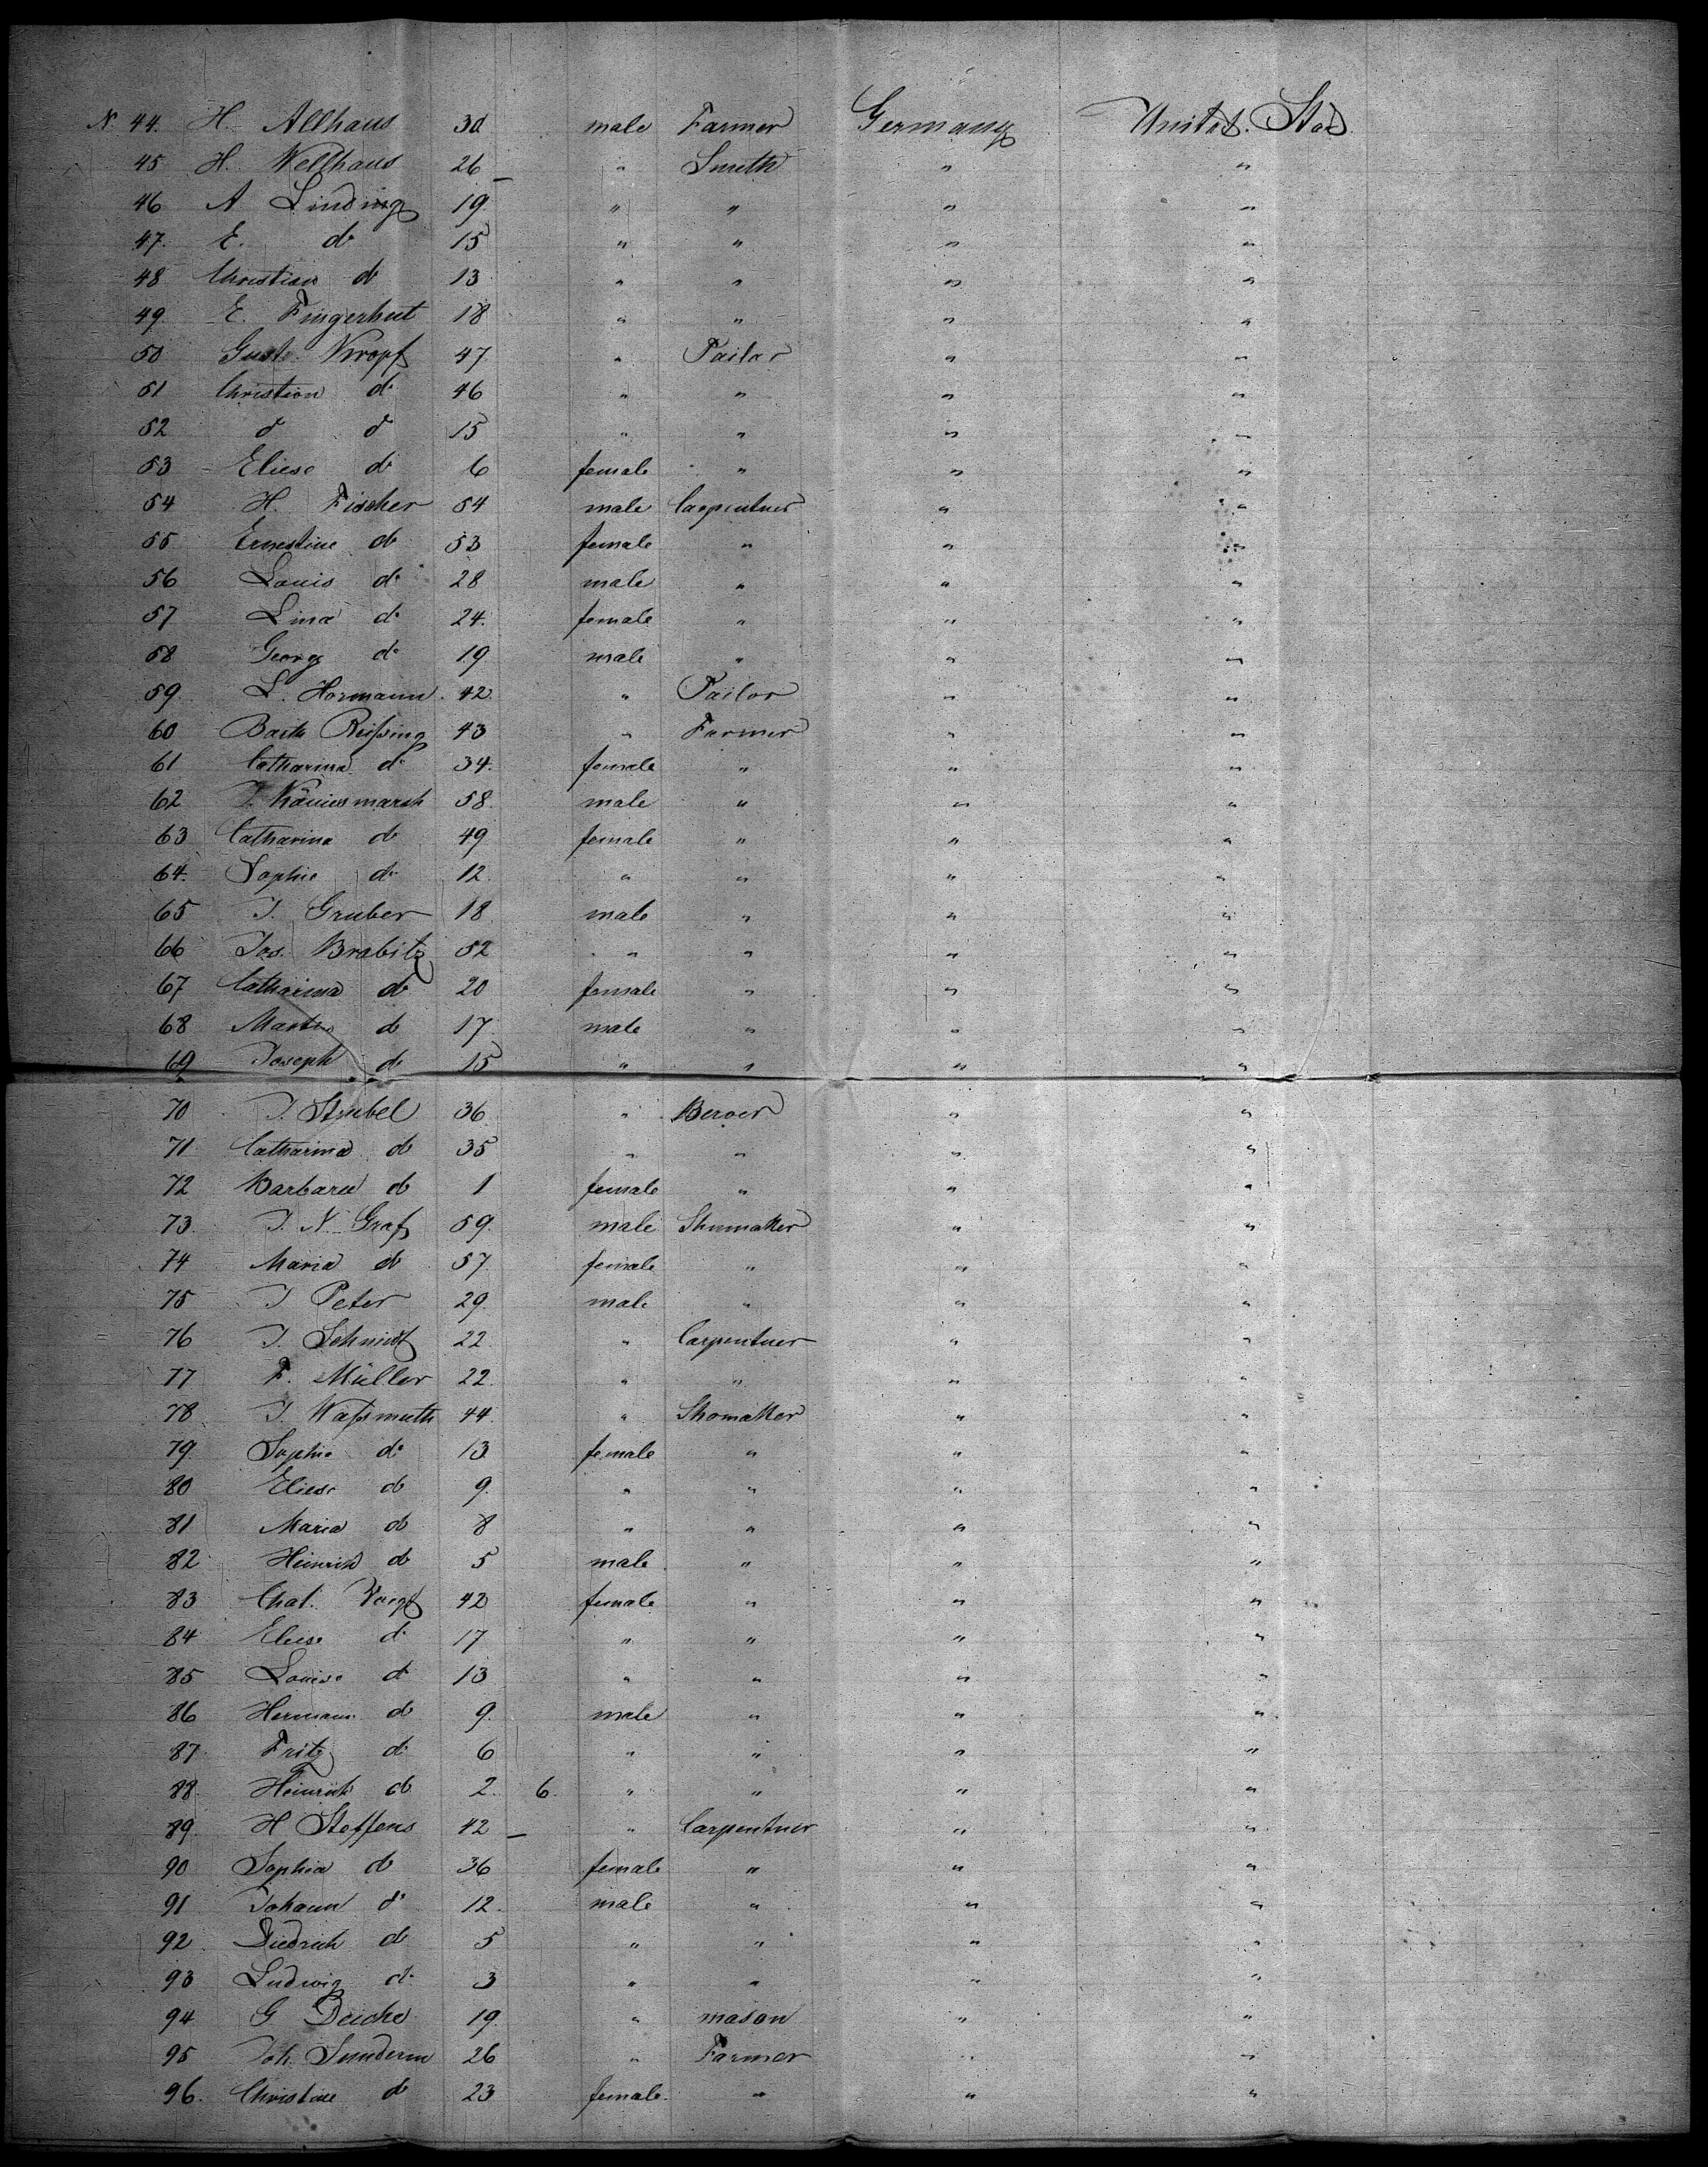 N. 44. H. Allhaus 30 male Farmer Germany Unitet. Stas
45 H. Wellhaus 26 — " Smeth " "
46 A Linding 19 " " " "
47. E. do 15 " " " "
48 Christian do 13 " " " "
49. E. Fingerhut 18 " " " "
50 Gust. Kropf 47 " Tailor " "
51 Christian do 46 " " " "
52 do do 15 " " " "
53 Eliese do 6 female " " "
54 H. Fischer 54 male Carpentner " "
55 Ernestine do 53 female " " "
56 Louis do 28 male " " "
57 Lina do 24. female " " "
58 Georg do 19 male " " "
59. L. Hormann 42 " Tailor " "
60 Barth Reißing 43 " Farmer " "
61 Catharina do 34. female " " "
62 58. male " " "
63 Catharina do 49 female " " "
64. Sophie do 12 " " " "
65 J. Gruber 18 male " " "
66 Jos. Brabitz 52 " " " "
67 Catharina do 20 female " " "
68 Martin do 17. male " " "
69 Joseph do 15 " " " "
70 J. Strubel 36 " " "
71 Catharina do 35 " " " "
72 Barbara do 1 female " " "
73. J. N. Graf 59. male Shumakker " "
74 Maria do 57 female " " "
75 J Peter 29. male " " "
76 J. Schmidt 22. " Carpentner " "
77 F. Müller 22. " " " "
78. J. Waßmuth 44. " Shomakker " "
79. Sophie do 13 female " " "
80 Eliese do 9. " " " "
81 Maria do 8 " " " "
82 Heinrich do 5 male " " "
83 Chat. Voigt 42 female " " "
84 Eliese do 17 " " " "
85 Louise do 13 " " " "
86 Hermann do 9. male " " "
87. Fritz do 6 " " " "
88. Heinrich do 2. 6. " " " "
89. H Steffens 42 — " Carpentner " "
90 Sophia do 36 female " " "
91 Johann do 12. male " " "
92. Diedrich do 5 " " " "
93 Ludwig do 3 " " " "
94 G Deicke 19. " mason " "
95 Joh. Sunderm 26 " Farmer " "
96. Christine do 23 female. " " "